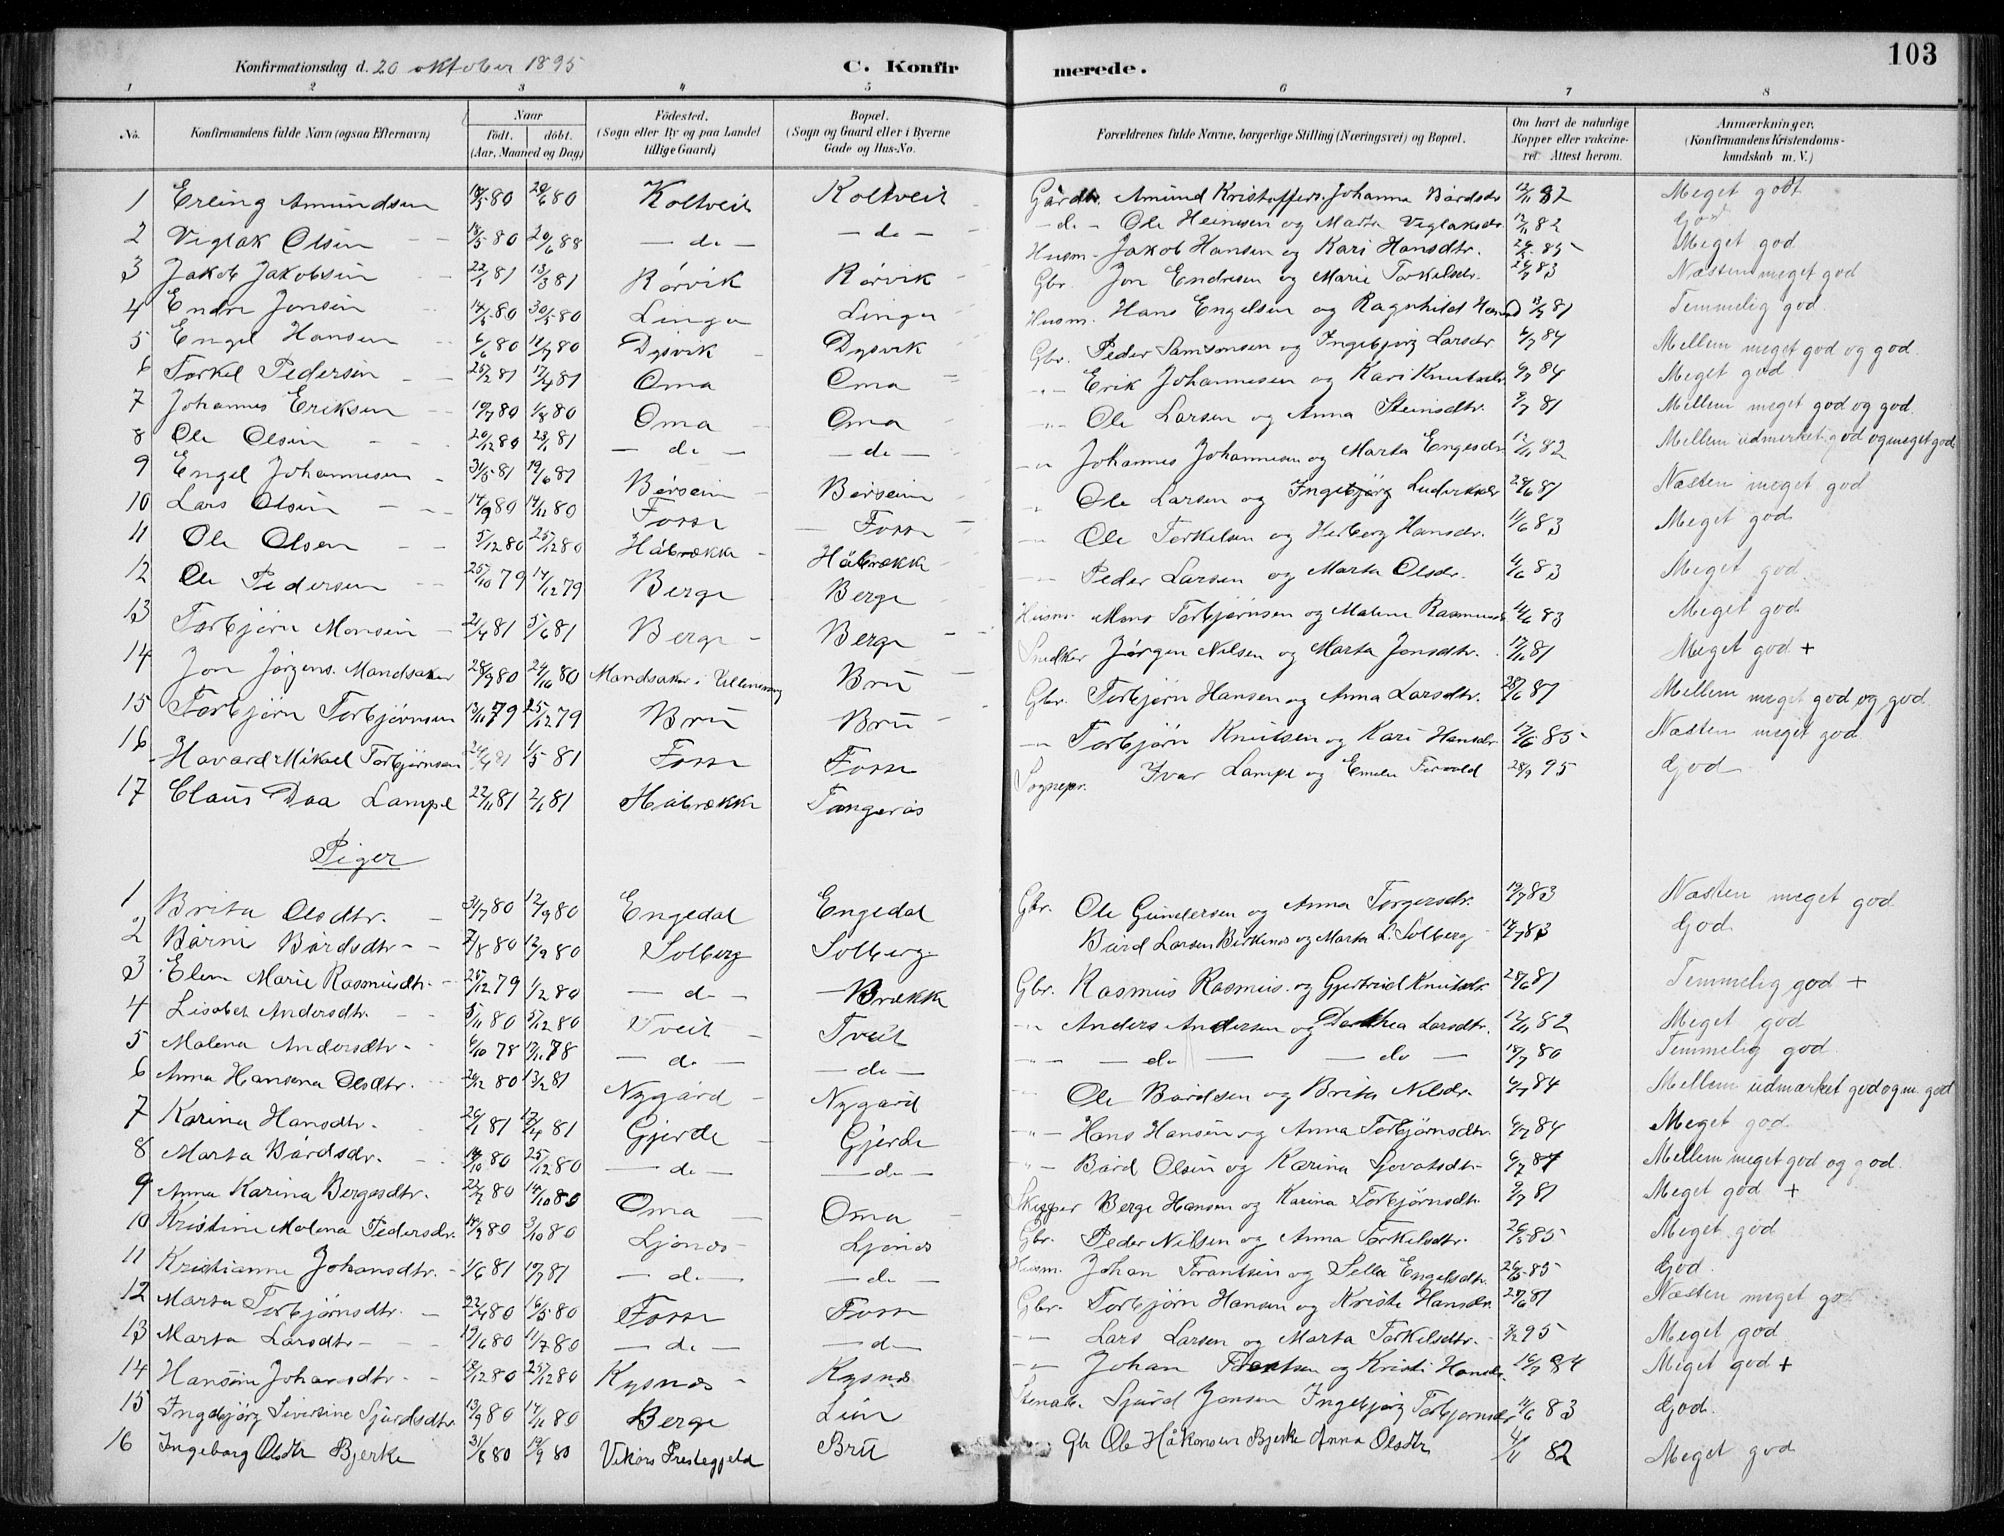 103
Konfirmationsdag d. 20 oktober 1895 C. Konfir merede.
1 2 3 4 5 6 7 8
No. Konfirmandens fulde Navn (ogsaa Efternavn) Naar født. døbt. (Aar, Maaned og Dag) Fødested. (Sogn eller By og paa Landet tillige Gaard) Bopæl. (Sogn og Gaard eller i Byerne Gade og Hus-No. Forældrenes fulde Navne, borgerlige Stilling (Næringsvei) og Bopæl. Om havt de naturlige Kopper eller vakcineret. Attest herom. Anmærkninger, (Konfirmandens Kristendomskundskab m. V.)
1 Erling Amundsen 80 20/6 80 Koltveit Koltveit Gårdbr. Amund Kristoffers. Johanna Bårdsdr 12/11 82 Meget godt
2 Viglak Olsen 18/5 80 20/6 88 - de - - de - - d - Ole Heinesen og Marta Viglaksdr 12/11 82 God
3 Jakob Jakobsen 22/1 81 13/3 81 Rørvik Rørvik Husm. Jakob Hansen og Kari Hansdtr. 85 Meget god
4 Endre Jonsen 14/5 80 30/5 80 Linga Linga Gbr. Jon Endresen og Marie Torkelsdtr. 83 Næsten meget god
5 Engel Hansen 6/6 80 11/7 80 Dysvik Dysvik Husm. Hans Engelsen og Ragnhild 81 Temmelig god
6 Torkel Pedersen 25/2 81 17/4 81 Oma Oma Gbr. Peder Samsonsen og Ingebjørg Larsdtr 6/7 84 Mellem meget god og god
7 Johannes Eriksen 10/7 80 1/8 80 Oma Oma - " - Erik Johannesen og Kari Knutsdr 9/7 84 Meget god
8 Ole Olsen 20/12 80 23/1 81 - de - - de - - " - Ole Larsen og Anna Steinsdtr. 9/7 81 Mellem meget god og god.
9 Engel Johannesen 31/5 81 19/6 81 Børseim Børseim - " Johannes Johannesen og Marta Engesdr 12/11 82 Mellem udmerket god og meget god
10 Lars Olsen 14/9 80 14/11 80 Fosse Fosse " Ole Larsen og Ingebjørg 29/6 81 Næsten meget god
11 Ole Olsen 5/12 80 25/12 80 Håbrække Håbrække " Ole Torkelsen og Herborg Hansdr. 11/6 83 Meget god
12 Ole Pedersen 25/10 79 14/12 79 Berge Berge - " - Peder Larsen og Marta Olsdr. 11/6 83 Meget god
13 Torbjørn Monsen 21/4 81 5/6 81 Berge Berge Husm. Mons Torbjørnsen og Malene Rasmusdr 11/6 83 Meget god
14 Jon Jørgens. Mandsaker 28/9 80 24/10 80 Mandsaker i Ullensvang Brú Snedker Jørgen Nilsen og Marta Jonsdtr. 17/10 81 Meget god +
15 Torbjørn Torbjørnsen 13/11 79 25/12 79 Brú Brú Gbr. Torbjørn Hansen og Anna Larsdtr. 28/6 81 Mellem meget god og god
16 Havard Mikael Torbjørnsen 24/4 81 1/5 81 Fosse Fosse - " Torbjørn Knutsen og Kari Hansdr 85 Næsten meget god
17 Claus Daa Lampe 22/11 81 2/1 81 Håbrække Tangerås Sognepr. Ivar Lampe og 28/9 95 God
Piger
1 Brita Olsdtr. 31/7 80 12/9 80 Engedal Engedal Gbr. Ole Gundersen og Anna Torgersdr. 83 Næsten meget god
2 Bårni Bårdsdtr 7/8 80 12/9 80 Solberg Solberg Bård Larsen Birkenes og Marta L. Solberg 83 God
3 Elen Marie Rasmusdtr. 25/12 79 1/2 80 - de - Brække Gbr. Rasmus Rasmus. og Gjertrud Knutsdr 28/6 81 Temmelig god +
4 Lisabet Andersdtr. 5/11 80 5/12 80 Tveit Tveit " Anders Andersen og Dorthea Larsdtr. 12/11 82 Meget god
5 Malena Andersdtr 6/10 78 17/11 78 - de - - de - - " - - de - - de - 18/7 80 Temmelig god
6 Anna Hansena Olsdtr. 26/12 80 13/2 81 Nygård Nygård Ole Bårdsen og Brita Nilsdr. 6/7 84 Mellem udmærket god og m. god
7 Karina Hansdtr. 26/1 81 17/4 81 Gjerde Gjerde - " - Hans Hansen og Anna Torbjørnsdtr. 6/7 84 Meget god
8 Marta Bårdsdr. 14/10 80 25/12 80 - de - - de - " - Bård Olsen og Karina Sjovatsdtr 6/7 84 Mellem meget god og god.
9 Anna Karina Bergesdtr. 22/7 80 14/10 80 Oma Oma Skipper Berge Hansen og Karina Torbjørnsdtr. 9/7 81 Meget god +
10 Kristine Malena Pedersdr. 14/9 80 3/10 80 Ljones Ljones Gbr. Peder Nilsen og Anna Torkelsdtr. 26/5 85 Meget god
11 Kristianna Johansdtr. 1/6 81 81 - de - - de - Husm. Johan Frantsen og Sella Engelsdtr. 26/5 85 God.
12 Marta Torbjørnsdtr. 22/4 80 16/5 80 Fosse Fosse Gbr. Torbjørn Hansen og Kristi Hansdr. 81 Næsten meget god
13 Marta Larsdtr 19/6 80 11/7 80 - de - - de - - " - Lars Larsen og Marta Torkelsdtr. 95 Meget god
14 Hansine Johansdtr. 18/12 80 25/12 80 Kysnes Kysnes - " - Johan Frantsen og Kristi Hansdr 84 Meget god +
15 Ingebjørg Siversine Sjurdsdtr 13/9 80 14/11 80 Berge Sjurd Jansen Ingebjørg Torbjørnsdr 11/6 83 God.
16 Ingeborg Olsdtr Bjerke 31/8 80 19/9 80 Vikørs Prestegjeld Brú Gbr Ole Håkonsen Bjerke Anna Olsdtr 4/11 82 Meget god